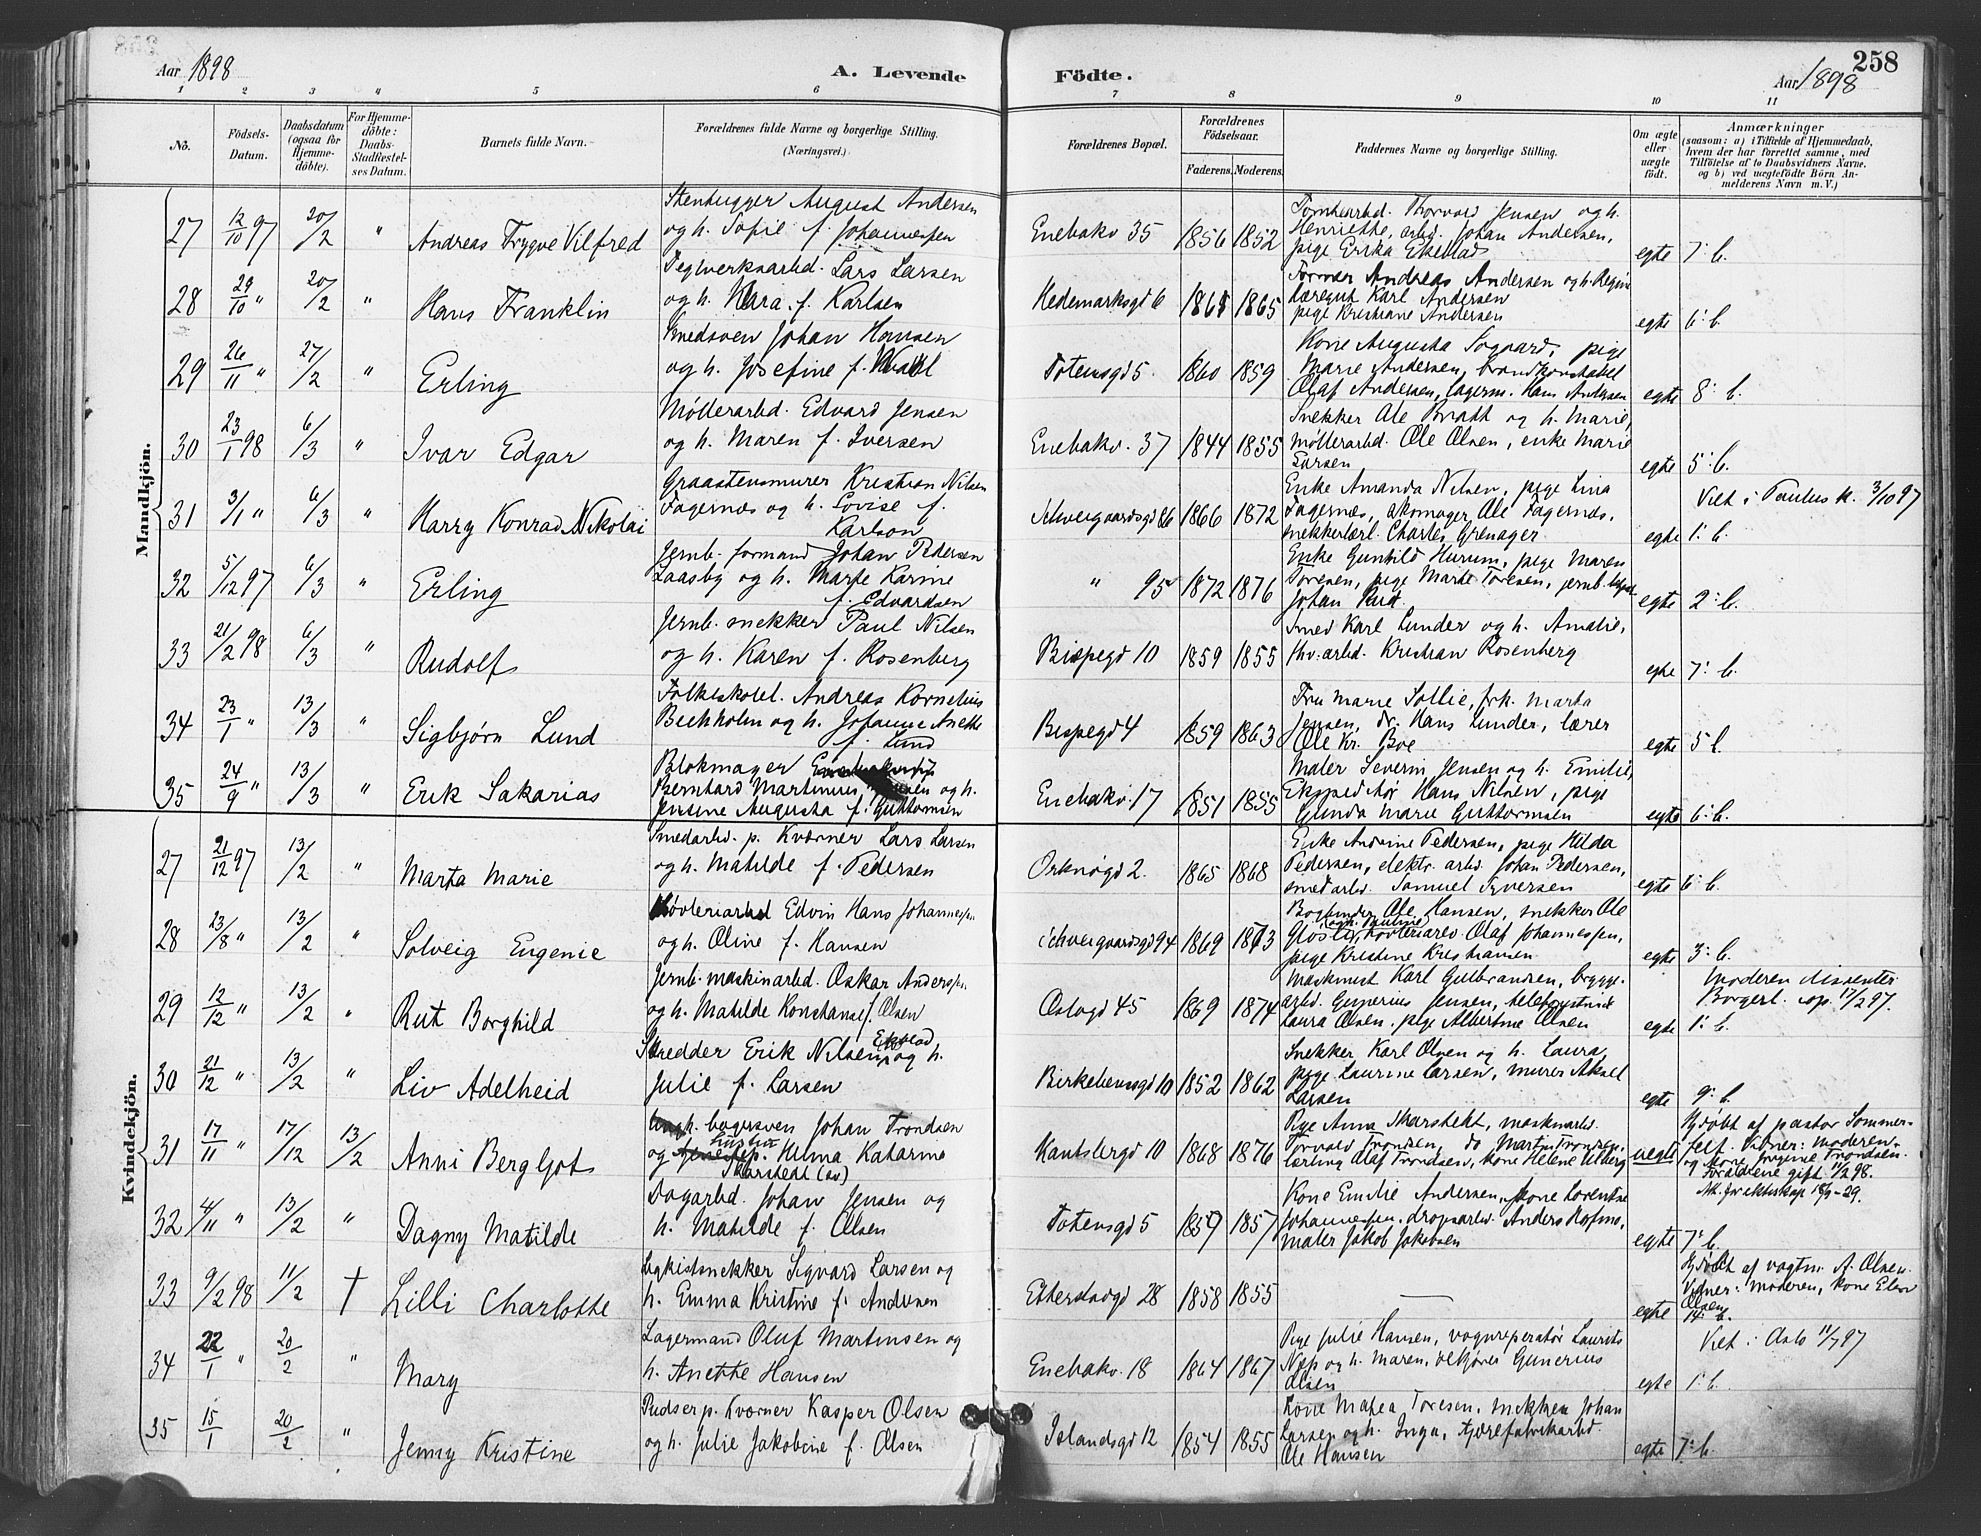 258
Aar 1898
A. Levende
Födte.
Aar 1898
1 2 3 " 5 6 7 8 9 10 11
No.
Födsels-
Datum.
Daabsdatum
(ogsaa for
Hjemme-
döbte).
For Hjemme-
döbte:
Daabs-
Stadfæstel-
ses Datum.
Barnets fulde Navn.
Forældrenes fulde Navne og borgerlige Stilling.
(Næringsvei.)
Forældrenes Bopæl.
Forældrenes
Födselsaar.
Faderens. Moderens.
Faddernes Navne og borgerlige Stilling.
Om ægte
eller
uægte
födt.
Anmærkninger
(saasom: a) i Tilfælde af Hjemmedaab,
hvem der har forrettet samme, med
Tilföielse af to Daabsvidners Navne.
og b) ved uægtefödte Börn An-
melderens Navn m. V.)
Mandkjön.
27 12/10 97 20/2 " Andreas Trygve Vilfred
Stenhugger August Andersen
og h. Sofie f. Johannessen
Enebakv 35 1856 1852
Tomtearbd. Thorvald Jensen og h.
Henriette, arbd. Johan Andersen,
pige Erika Ekeblad
egte 7: b.
28 29/10 " 20/2 " Hans Franklin
Teglverksarbd. Lars Larsen
og h. Klara f. Karlsen
Hedemarksgd 6 1865
Former Andreas Andersen og h. Regine
Læregut Karl Andersen
pige Kristiane Andersen
egte 6: b.
29 26/11 " 27/2 " Erling
Smedsven Johan Hansen
og h. Josefine f.
Totensgd 5. 1860 1859
Kone Augusta Sogaard, pige
Marie Andersen, brandkonstabel
Olaf Andersen, lagerm. Hans Andersen
egte 8: b.
30 23/1 98 6/3 " Ivar Edgar
Møllerarbd. Edvard Jensen
og h. Maren f. Iversen
Enebakv. 37 1844 1855
Snekker Ole Bratt og h. Marie,
Møllerarbd. Ole Olsen, enke Marie
Larsen
egte 5: b.
31 3/1 " 6/3 " Harry Konrad Nikolai
Graastensmurer Kristian Nilsen
Fagernæs og h. Lovise f.
Karlson
Schweigaardsgd 86 1866 1872
Enke Amanda Nilsen, pige Lina
Fagernæs, skomager Ole Fagernæs,
snekkerlærl. Charles Grenager
egte 1: b.
Viet i Paulus k. 3/10 97
32 5/12 97 6/3 " Erling
Jernb. formand Johan Pedersen
Laasby og h. Marte Karine
f. Edvardsen
" 95 1872 1876
Enke Gunhild Hurum, pige Maren
Toresen, pige Marte Toresen, jernb.
Johan Rud.
egte 2: b.
33 21/2 98 6/3 " Rudolf
Jernb. snekker Paul Nilsen
og h. Karen f. Rosenberg
Bispegd 10 1859 1855
Smed Karl Lunder og h. Amalie,
arbd. Kristian Rosenberg
egte 7: b.
34 23/1 " 13/3 " Sigbjørn Lund
Folkeskolel. Andreas Kornelius
Bechholm og h. Johanne Anette
f. Lund
Bispegd 4 1859 1863
Fru Marie Sollie, frk. Marta
Jensen, dr. Hans Lunder, lærer
Ole Kr. Boe
egte 5 b.
35 24/9 " 13/3 " Erik Sakarias
Blokmager
Bernhard Martinius og h.
Jensine Augusta f. Guttormsen
Enebakv. 17 1851 1855
Maler Severin Jensen og h. Emilie,
Ekspeditør Hans Nilsen, pige
Gunda Marie Guttormsen
egte 6: b.
Kvindekjön.
27 21/12 97 13/2 " Marta Marie
Smedarbd. p. Kværner Lars Larsen
og h. Matilde f. Pedersen
Orknøgd 2. 1865 1868
Enke Andrine Pedersen, pige Hilda
Pedersen, elektr. arbd. Johan Pedersen,
smedarbd. Samuel Syversen
egte 6: b.
28 23/8 " 13/2 " Solveig Eugenie
Høvleriarbd Edvin Hans Johannessen
og h. Oline f. Hansen
Schweigaardsgd 94 1869 1873
Bogbinder Ole Hansen, snekker Ole
høvleriarb. Olaf Johannessen,
pige Kristine Kristiansen
egte 3: b.
29 12/12 " 13/2 " Rut Borghild
Jernb. maskinarbd. Oskar Anderssen
og h. Matilde Konstanse f. Olsen
Oslogd 45 1869 1874
Maskinist Karl Gulbransen, brygge-
arbd. Gunerius Jensen, telefonistinde
Laura Olsen, pige Albertine Olsen
egte 1: b.
Moderen dissenter
Borgerl. 17/2 97.
30 21/12 " 13/2 " Liv Adelheid
Skredder Erik Nilsen Ekstad og h.
Julie f. Larsen
Birkebeinsgd 10 1852 1862
Snekker Karl Olsen og h. Laura,
pige Laurine Larsen, murer Aksel
Larsen
egte 9: b.
31 17/11 " 17/12 13/2 Anni Bergljot
Ungk. bagersven Johan Trondsen
og hustru Helma Katarine
Skarstedt (sv)
Kantslergd 10 1868 1876
Pige Anna Skarstedt, maskinarbd.
Torvald Trondsen, do Martin Trondsen,
lærling Olaf Trondsen, kone Helene Ulberg
uegte
Hjdøbt af pastor Sommer-
felt. Vidner: moderen
og kone Jørgine Trondsen.
Forældrene gift 11/2 98.
32 4/11 " 13/2 " Dagny Matilde
Dagarbd. Johan Jensen og
h. Matilde f. Olsen
Totensgd 5 1859 1857
Kone Emilie Andersen, kone Lorentse
Johannessen, dropsarbd. Anders Hofmo,
maler Jakob Jakobsen
egte 7: b.
33 9/2 98 11/2 † Lilli Charlotte
Ligkistsnekker Sigvard Larsen og
h. Emma Kristine f. Andersen
Etterstadgd 28 1858 1855
—
egte 14 b.
Hjdøbt af vagtm. A. Olsen.
Vidner: moderen, kone Elen
Olsen
34 22/1 " 20/2 " Mary
Lagermand Oluf Martinsen og
h. Anette Hansen
Enebakv. 18 1864 1867
Pige Julie Hansen, vognreperatør Laurits
Næp og h. Maren, ølkjører Gunerius
Olsen
egte 1: b.
Viet i Oslo 11/7 97
35 15/1 20/2 " Jenny Kristine
Pudser p. Kværner Kasper Olsen
og h. Julie Jakobine f. Olsen
Islandsgd 12 1854 1855
Kone Matea Toresen, snekker Johan
Larsen og h. Inga, tjærefabrikarbd.
Ole Hansen
egte 7: b.